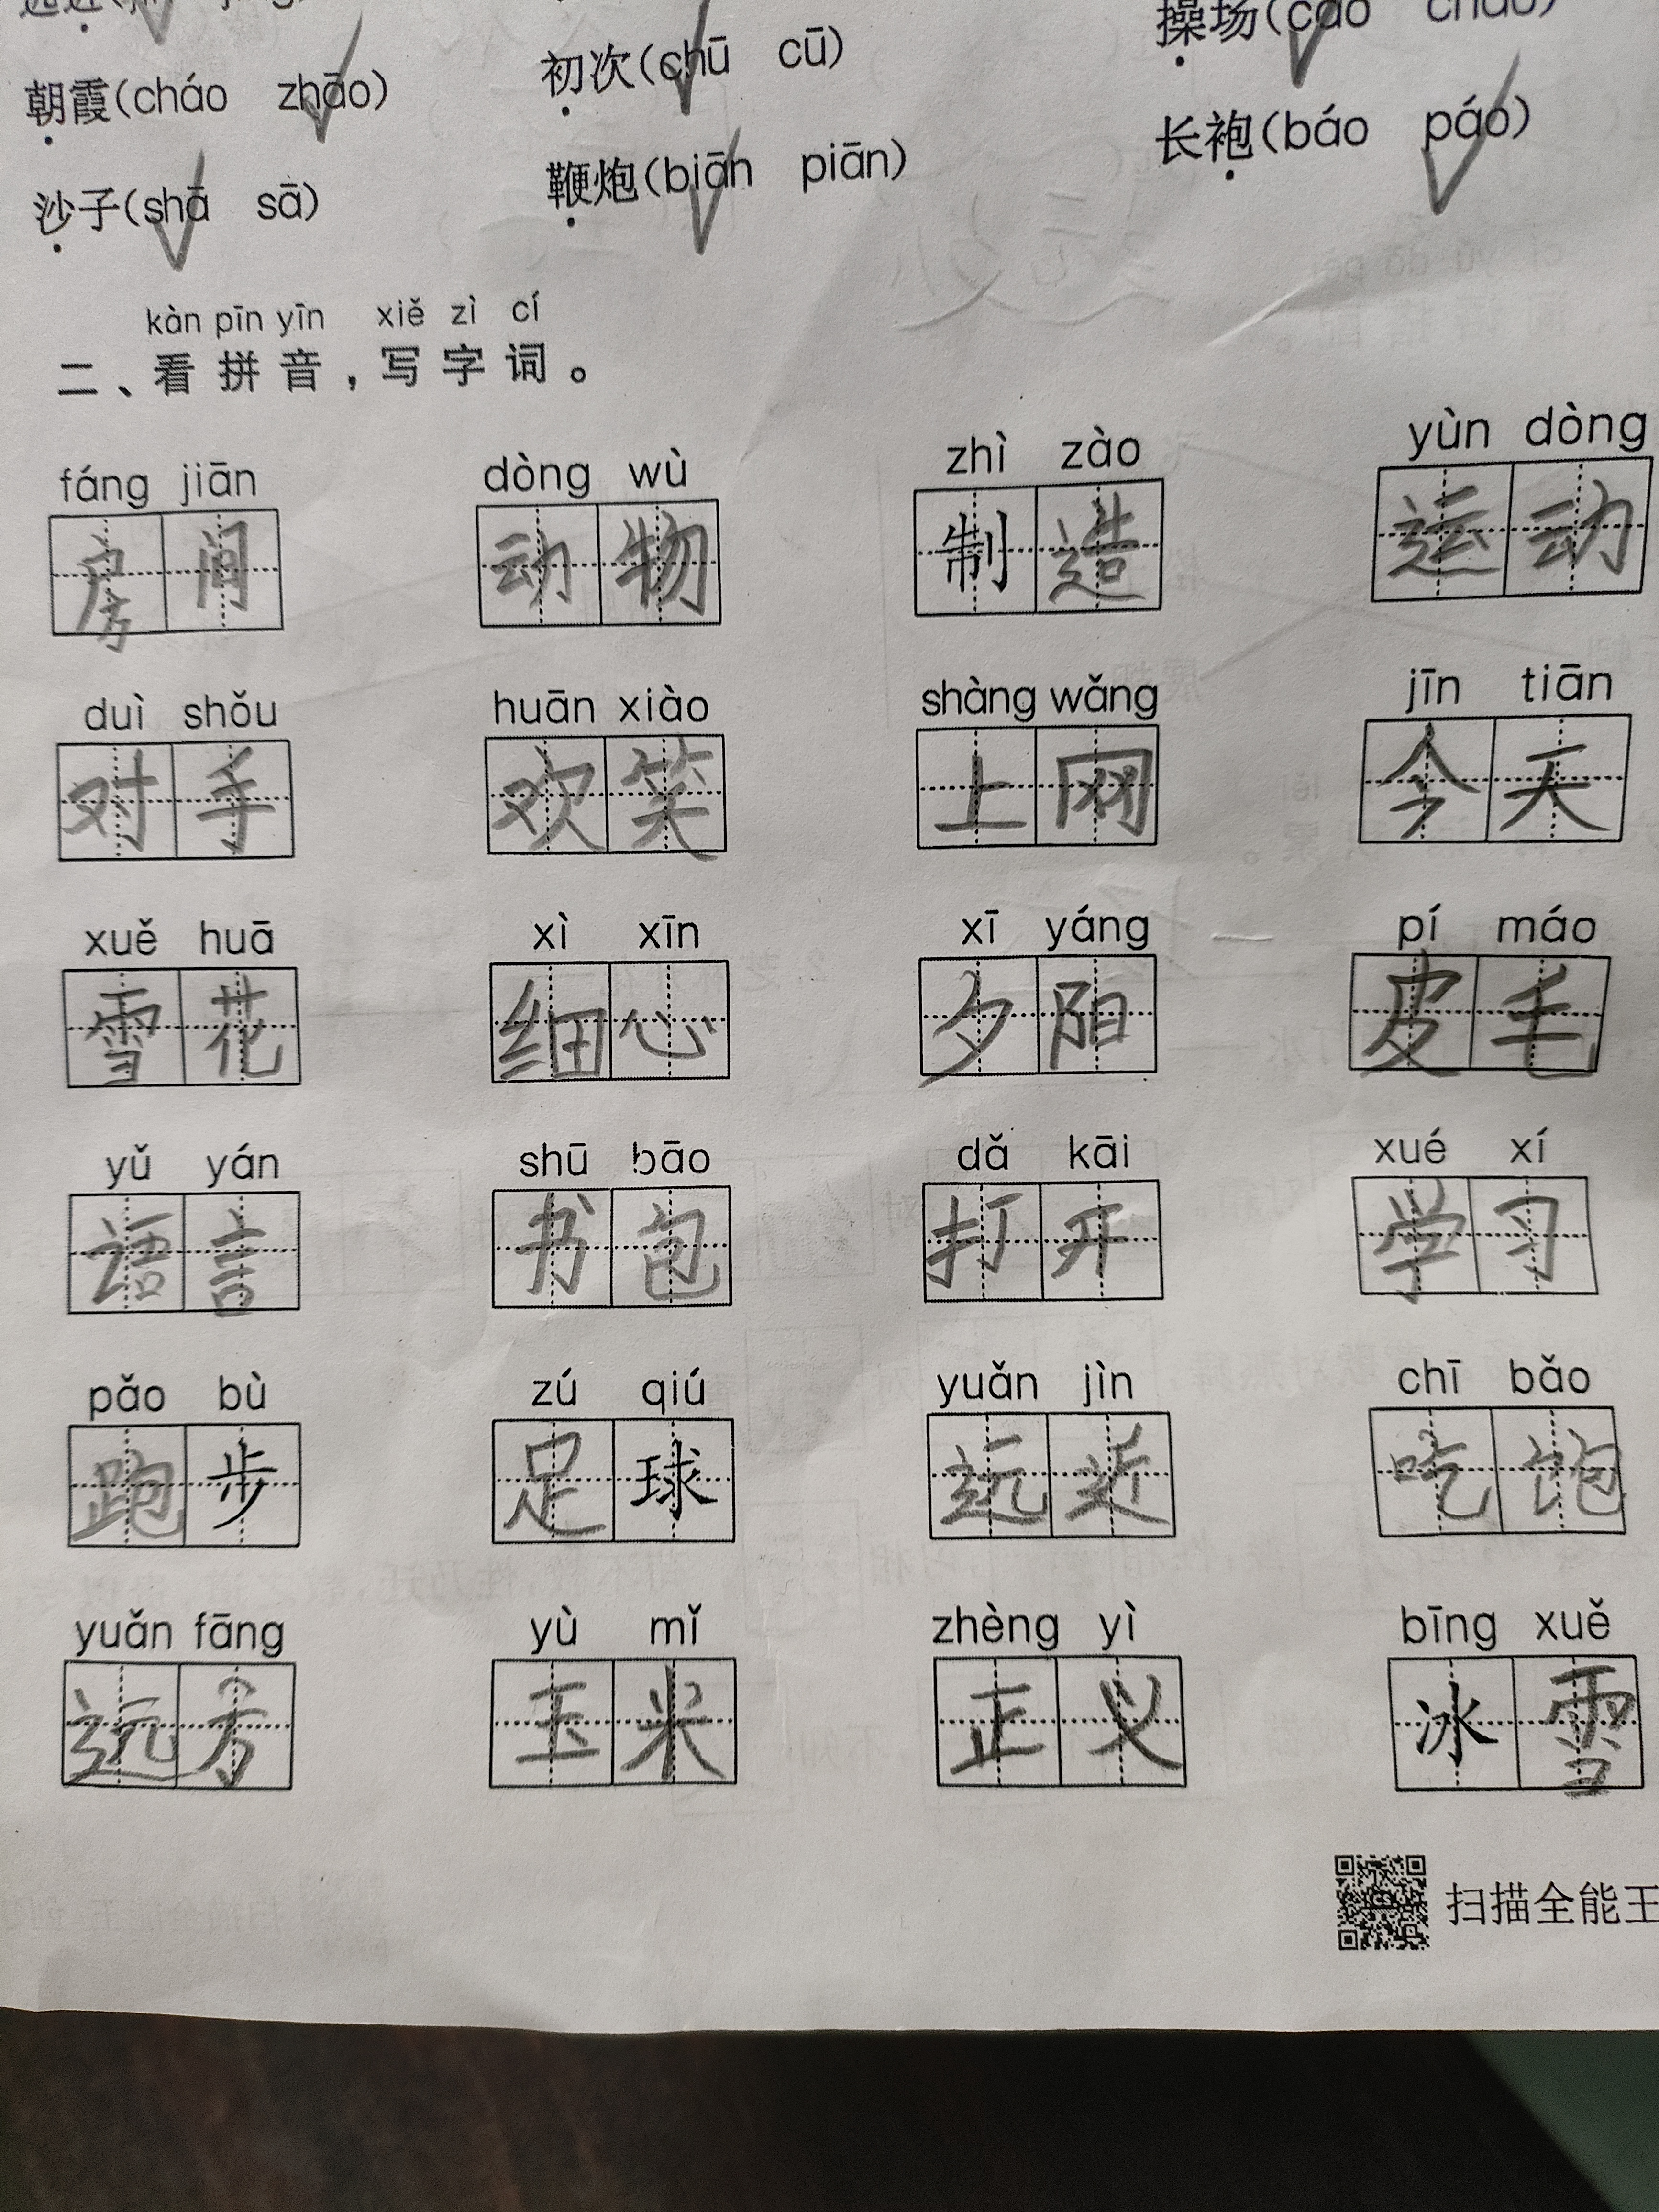 朝霞(cháo zhāo) 初次(chū cū) 操场(cāo chāo)
沙子(shā sā) 鞭炮(biān piān) 长袍(báo páo)
kàn pīn yīn xiě zì cí
二、看拼音，写字词。
fáng jiān dòng wù zhì zào yùn dòng
房间 动物 制造 运动
duì shǒu huān xiào shàng wǎng jīn tiān
对手 欢笑 上网 今天
xuě huā xì xīn xī yáng pí máo
雪花 细心 夕阳 皮毛
yǔ yán shū bāo dǎ kāi xué xí
语言 书包 打开 学习
pǎo bù zú qiú yuǎn jìn chī bǎo
跑步 足球 远近 吃饱
yuǎn fāng yù mǐ zhèng yì bīng xuě
远方 玉米 正义 冰雪
扫描全能王